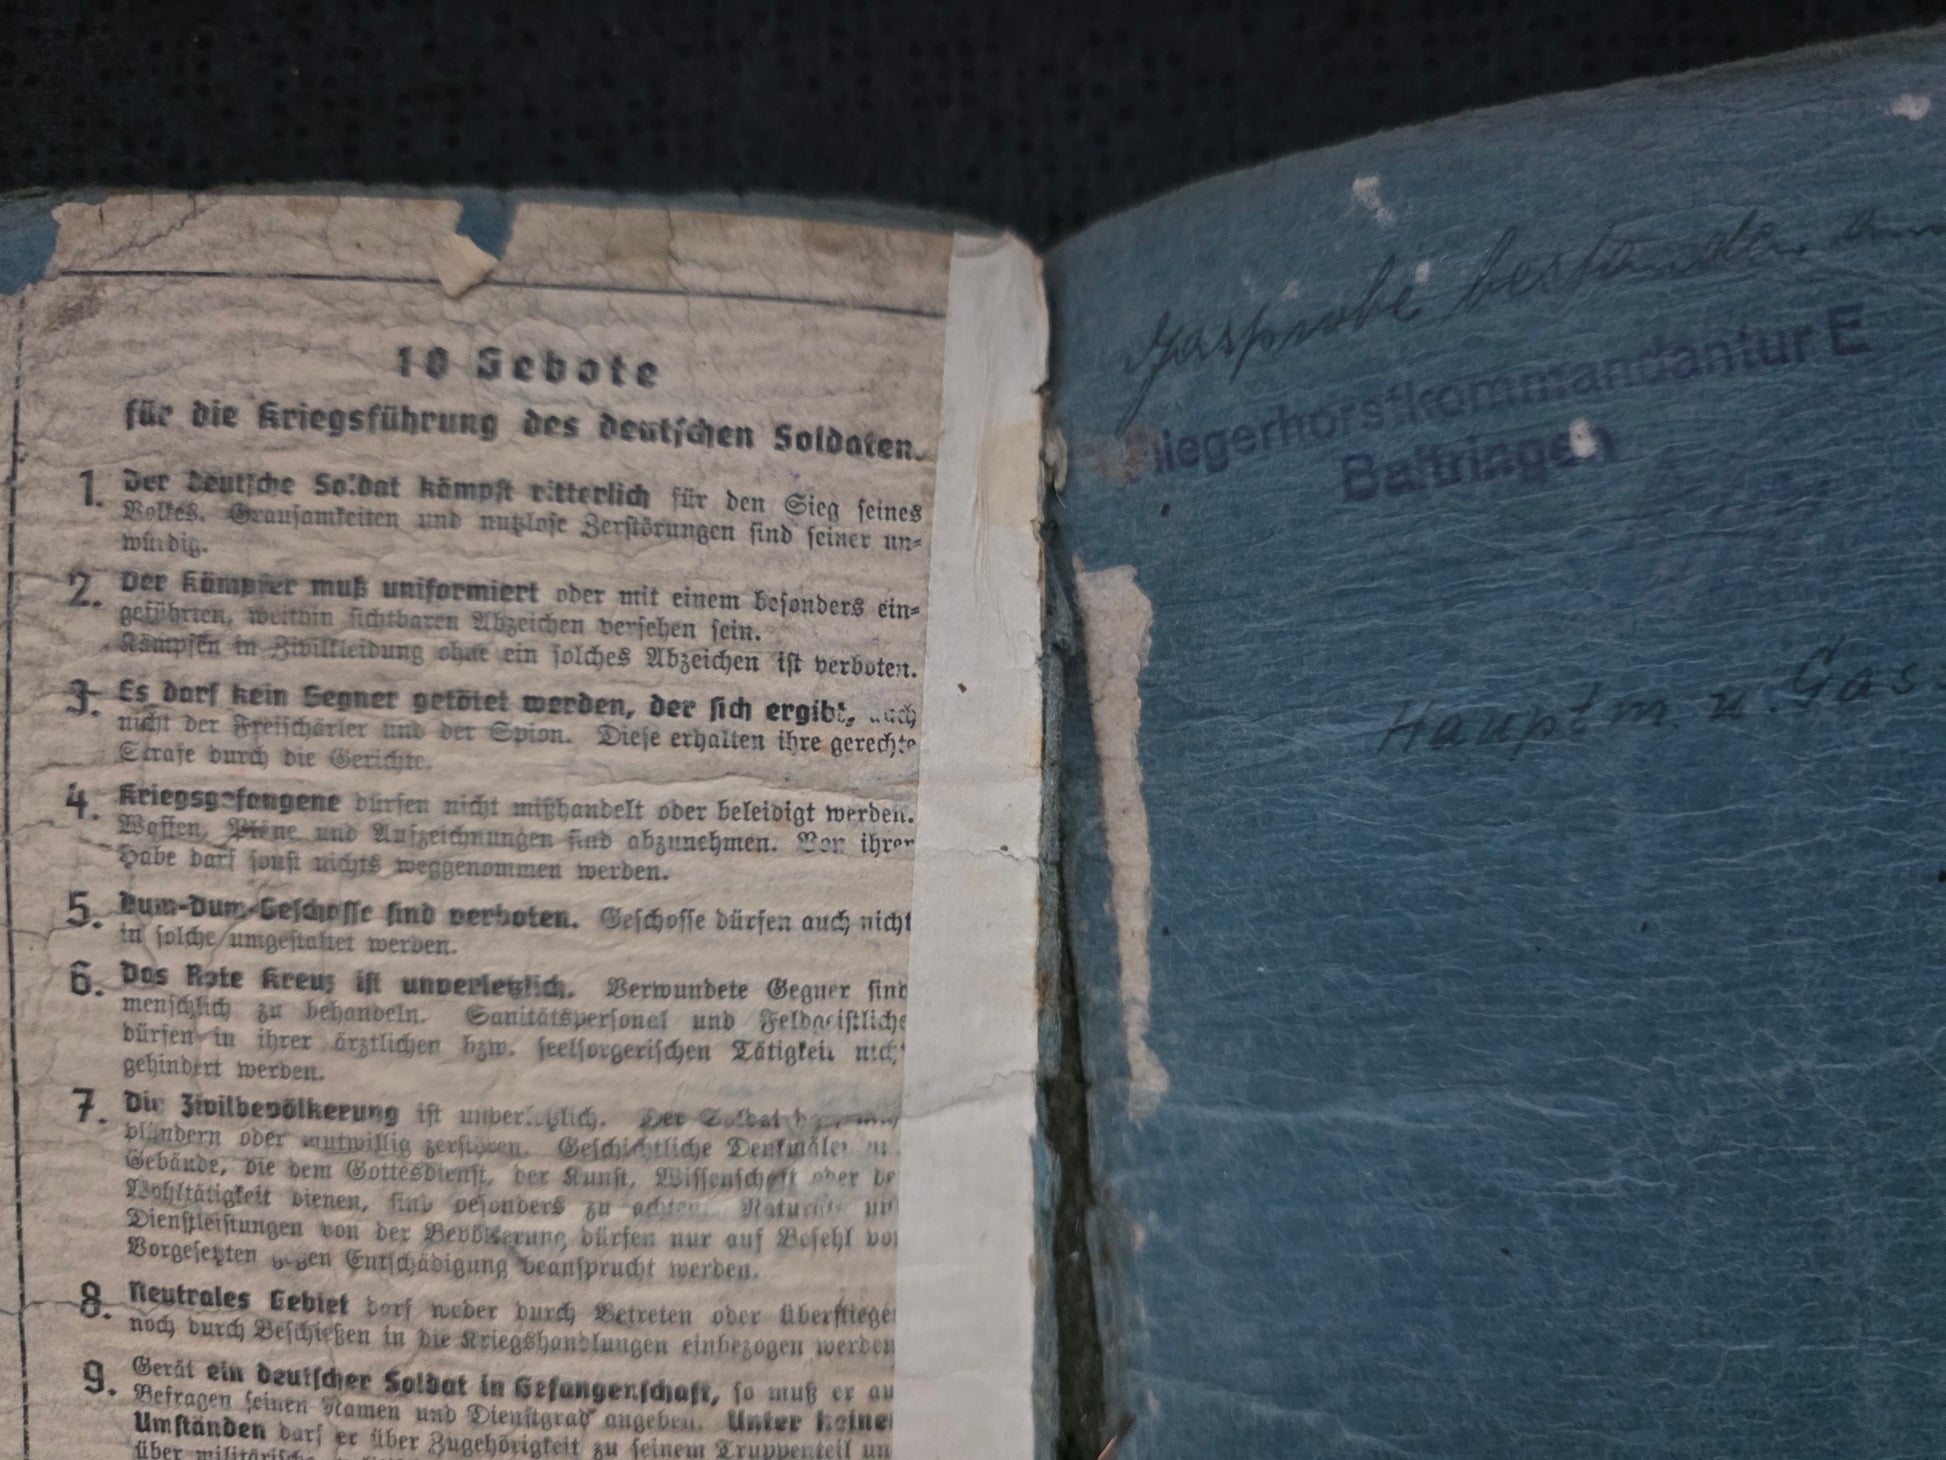 10 Gebote
für die Kriegsführung des deutschen Soldaten.
1. Der deutsche Soldat kämpft ritterlich für den Sieg seines
Volkes. Grausamkeiten und nutzlose Zerstörungen sind seiner un-
würdig.
2. Der Kämpfer muß uniformiert oder mit einem besonders ein-
geführten, weithin sichtbaren Abzeichen versehen sein.
Kämpfen in Zivilkleidung ohne ein solches Abzeichen ist verboten.
3. Es darf kein Gegner getötet werden, der sich ergibt, auch
nicht der Freischärler und der Spion. Diese erhalten ihre gerechte
Strafe durch die Gerichte.
4. Kriegsgefangene dürfen nicht mißhandelt oder beleidigt werden.
Waffen, Pläne und Aufzeichnungen sind abzunehmen. Von ihrer
Habe darf sonst nichts weggenommen werden.
5. Dum-Dum-Geschosse sind verboten. Geschosse dürfen auch nicht
in solche umgestaltet werden.
6. Das Rote Kreuz ist unverletzlich. Verwundete Gegner sind
menschlich zu behandeln. Sanitätspersonal und Feldgeistliche
dürfen in ihrer ärztlichen bzw. seelsorgerischen Tätigkeit nicht
gehindert werden.
7. Die Zivilbevölkerung ist unverletzlich. Der Soldat
plündern oder mutwillig zerstören. Geschichtliche Denkmäler
Gebäude, die dem Gottesdienst, der Kunst, Wissenschaft oder de
Wohltätigkeit dienen, sind besonders zu achten. Natural- un
Dienstleistungen von der Bevölkerung dürfen nur auf Befehl vo
Vorgesetzten gegen Entschädigung beansprucht werden.
8. Neutrales Gebiet darf weder durch Betreten oder Überfliege
noch durch Beschießen in die Kriegshandlungen einbezogen werden
9. Gerät ein deutscher Soldat in Gefangenschaft, so muß er au
Befragen seinen Namen und Dienstgrad angeben. Unter keine
Umständen darf er über Zugehörigkeit zu seinem Truppenteil un
über militärische
Gasprobe bestanden am
Fliegerhorstkommandantur E
Baltringen
Hauptm. u. Gas-